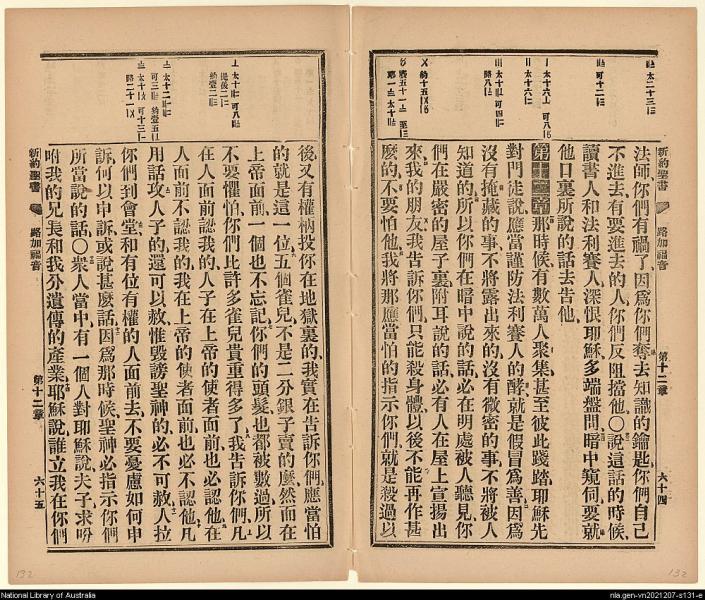 新約聖書
路加福音
第十二章
六十四
法師、你們有禍了、因爲你們奪去知識的鑰匙、你們自己
不進去、有要進去的人、你們反阻擋他、〇說這話的時候、
讀書人和法利賽人深恨耶穌、多端盤問、暗中窺伺、要就
他口裏所說的話去告他、
第十二章那時候、有數萬人聚集、甚至彼此踐踏、耶穌先
對門徒說、應當謹防法利賽人的酵、就是假冒爲善、因爲
沒有掩藏的事、不將露出來的、沒有微密的事、不將被人
知道的、所以你們在暗中說的話、必在明處被人聽見、你
們在嚴密的屋子裏附耳說的話、必有人在屋上宣揚出
來、我的朋友、我告訴你們、只能殺身體、以後不能再作甚
麽的、不要怕他、我將那應當怕的指示你們、就是殺過以
後、又有權柄投你在地獄裏的、我實在告訴你們、應當怕
的就是這一位、五個雀兒、不是二分銀子賣的麽、然而在
上帝面前、一個也不忘記、你們的頭髮、也都被數過、所以
不要懼怕、你們比許多雀兒貴重得多了、我告訴你們、凡
在人面前認我的、人子在上帝的使者面前、也必認他、在
人面前不認我的、我在上帝的使者面前、也必不認他、凡
用話攻人子的、還可以赦、惟毀謗聖神的、必不可赦、人拉
你們到會堂、和有位有權的人面前去、不要憂慮如何申
訴、何以申訴、或說甚麽話、因爲那時候、聖神必指示你們
所當說的話、〇衆人當中、有一個人對耶穌說、夫子、求吩
咐我的兄長、和我分遺傳的產業、耶穌說、誰立我在你們
新約聖書
路加福音
第十二章
六十五
132
132
National Library of Australia
nla.gen-vn2021207-s131-e